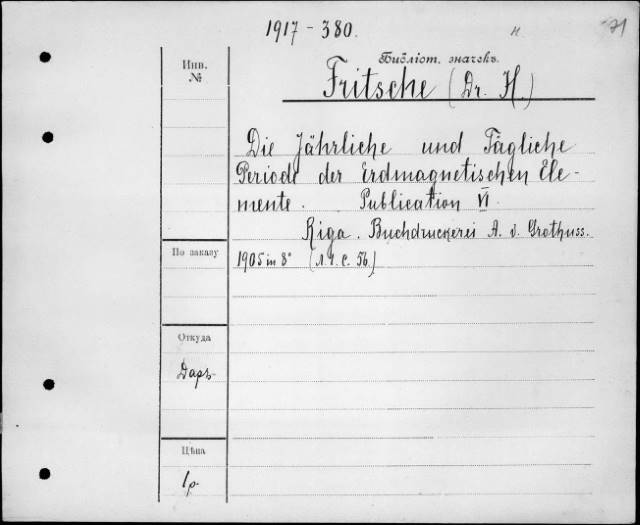 1917 - 380.
н
71
Библіот. значекъ.
Инв.
№
Fritsche (Dr. H.)
Die Jährliche und Tägliche
Periode der Erdmagnetischen Ele-
mente. Publication VI.
Riga. Buchdruckerei A. v. Grothuss.
По заказу
1905 in 8° (Л. 1. С. 56.)
Откуда
Даръ
Цѣна
1р.